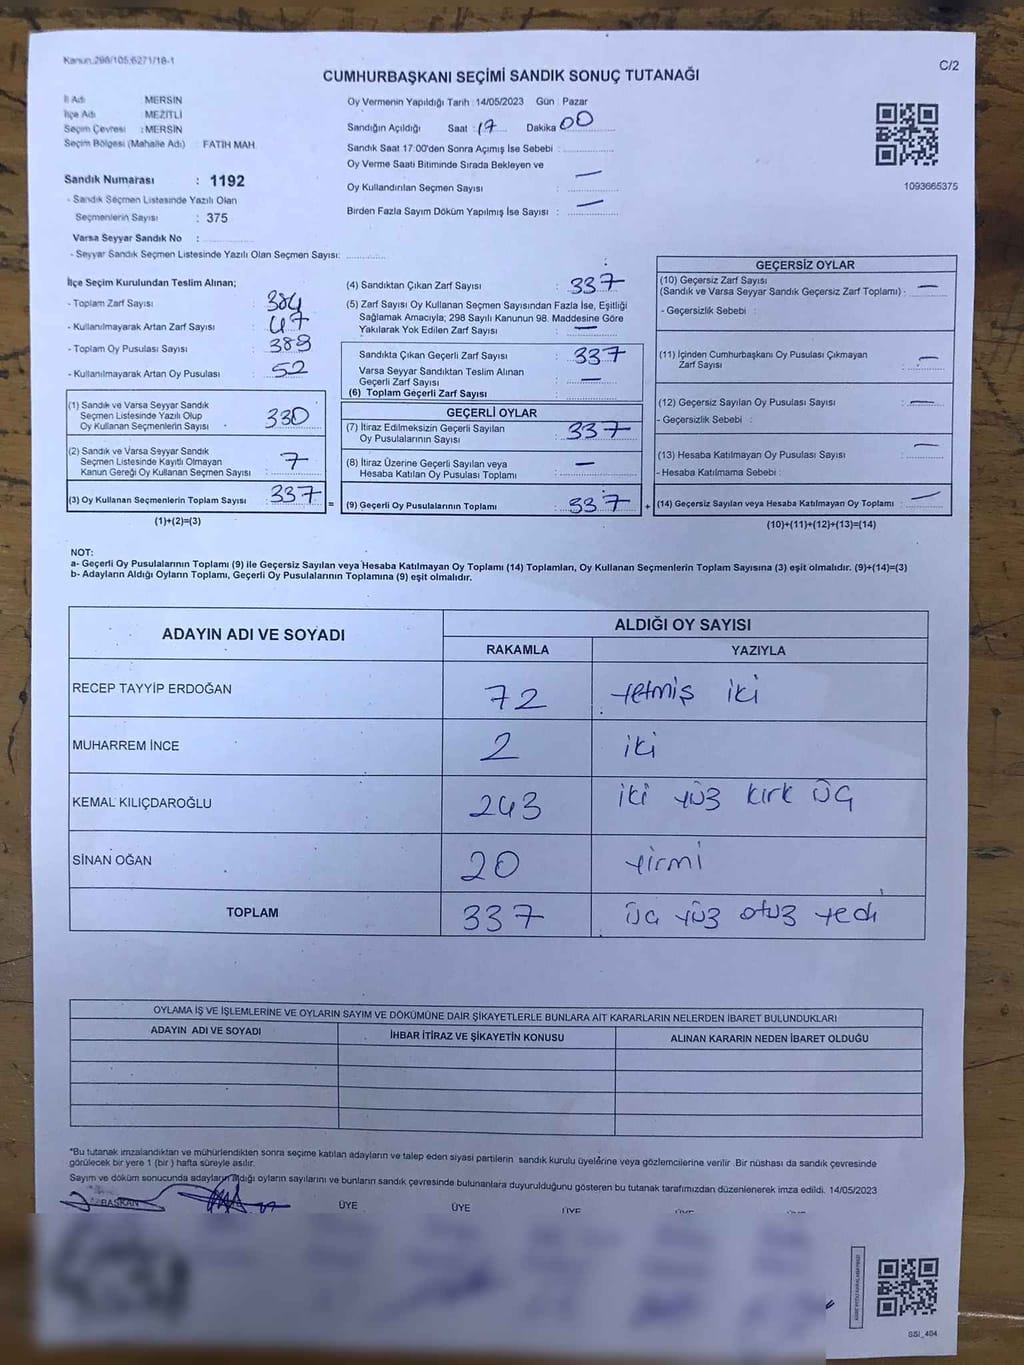 Kanun:298/105;6271/18-1
C/2
CUMHURBAŞKANI SEÇİMİ SANDIK SONUÇ TUTANAĞI
İl Adı MERSİN
İlçe Adı MEZİTLİ
Seçim Çevresi : MERSİN
Seçim Bölgesi (Mahalle Adı) : FATİH MAH.
Sandık Numarası : 1192
- Sandık Seçmen Listesinde Yazılı Olan
Seçmenlerin Sayısı : 375
Varsa Seyyar Sandık No :
- Seyyar Sandık Seçmen Listesinde Yazılı Olan Seçmen Sayısı:
Oy Vermenin Yapıldığı Tarih : 14/05/2023 Gün : Pazar
Sandığın Açıldığı Saat : 17 Dakika 00
Sandık Saat 17:00'den Sonra Açımış İse Sebebi :
Oy Verme Saati Bitiminde Sırada Bekleyen ve
Oy Kullandırılan Seçmen Sayısı : —
Birden Fazla Sayım Döküm Yapılmış İse Sayısı : —
1093665375
İlçe Seçim Kurulundan Teslim Alınan;
- Toplam Zarf Sayısı : 384
- Kullanılmayarak Artan Zarf Sayısı : 47
- Toplam Oy Pusulası Sayısı : 389
- Kullanılmayarak Artan Oy Pusulası : 52
(1) Sandık ve Varsa Seyyar Sandık
Seçmen Listesinde Yazılı Olup
Oy Kullanan Seçmenlerin Sayısı : 330
(2) Sandık ve Varsa Seyyar Sandık
Seçmen Listesinde Kayıtlı Olmayan
Kanun Gereği Oy Kullanan Seçmen Sayısı : 7
(3) Oy Kullanan Seçmenlerin Toplam Sayısı : 337
(1)+(2)=(3)
=
(4) Sandıktan Çıkan Zarf Sayısı : 337
(5) Zarf Sayısı Oy Kullanan Seçmen Sayısından Fazla İse, Eşitliği
Sağlamak Amacıyla; 298 Sayılı Kanunun 98. Maddesine Göre
Yakılarak Yok Edilen Zarf Sayısı : —
Sandıkta Çıkan Geçerli Zarf Sayısı : 337
Varsa Seyyar Sandıktan Teslim Alınan
Geçerli Zarf Sayısı : —
(6) Toplam Geçerli Zarf Sayısı :
GEÇERLİ OYLAR
(7) İtiraz Edilmeksizin Geçerli Sayılan
Oy Pusulalarının Sayısı : 337
(8) İtiraz Üzerine Geçerli Sayılan veya
Hesaba Katılan Oy Pusulası Toplamı : —
(9) Geçerli Oy Pusulalarının Toplamı : 337
+
GEÇERSİZ OYLAR
(10) Geçersiz Zarf Sayısı
(Sandık ve Varsa Seyyar Sandık Geçersiz Zarf Toplamı) : —
- Geçersizlik Sebebi :
(11) İçinden Cumhurbaşkanı Oy Pusulası Çıkmayan
Zarf Sayısı : —
(12) Geçersiz Sayılan Oy Pusulası Sayısı : —
- Geçersizlik Sebebi :
(13) Hesaba Katılmayan Oy Pusulası Sayısı : —
- Hesaba Katılmama Sebebi :
(14) Geçersiz Sayılan veya Hesaba Katılmayan Oy Toplamı : —
(10)+(11)+(12)+(13)=(14)
NOT:
a- Geçerli Oy Pusulalarının Toplamı (9) ile Geçersiz Sayılan veya Hesaba Katılmayan Oy Toplamı (14) Toplamları, Oy Kullanan Seçmenlerin Toplam Sayısına (3) eşit olmalıdır. (9)+(14)=(3)
b- Adayların Aldığı Oyların Toplamı, Geçerli Oy Pusulalarının Toplamına (9) eşit olmalıdır.
ADAYIN ADI VE SOYADI ALDIĞI OY SAYISI
RAKAMLA YAZIYLA
RECEP TAYYİP ERDOĞAN 72 yetmiş iki
MUHARREM İNCE 2 iki
KEMAL KILIÇDAROĞLU 243 iki yüz kırk üç
SİNAN OĞAN 20 yirmi
TOPLAM 337 üç yüz otuz yedi
OYLAMA İŞ VE İŞLEMLERİNE VE OYLARIN SAYIM VE DÖKÜMÜNE DAİR ŞİKAYETLERLE BUNLARA AİT KARARLARIN NELERDEN İBARET BULUNDUKLARI
ADAYIN ADI VE SOYADI İHBAR İTİRAZ VE ŞİKAYETİN KONUSU ALINAN KARARIN NEDEN İBARET OLDUĞU
*Bu tutanak imzalandıktan ve mühürlendikten sonra seçime katılan adayların ve talep eden siyasi partilerin sandık kurulu üyelerine veya gözlemcilerine verilir. Bir nüshası da sandık çevresinde
görülecek bir yere 1 (bir) hafta süreyle asılır.
Sayım ve döküm sonucunda adayların aldığı oyların sayılarını ve bunların sandık çevresinde bulunanlara duyurulduğunu gösteren bu tutanak tarafımızdan düzenlenerek imza edildi. 14/05/2023
BAŞKAN ÜYE ÜYE ÜYE ÜYE ÜYE
SSİ_404